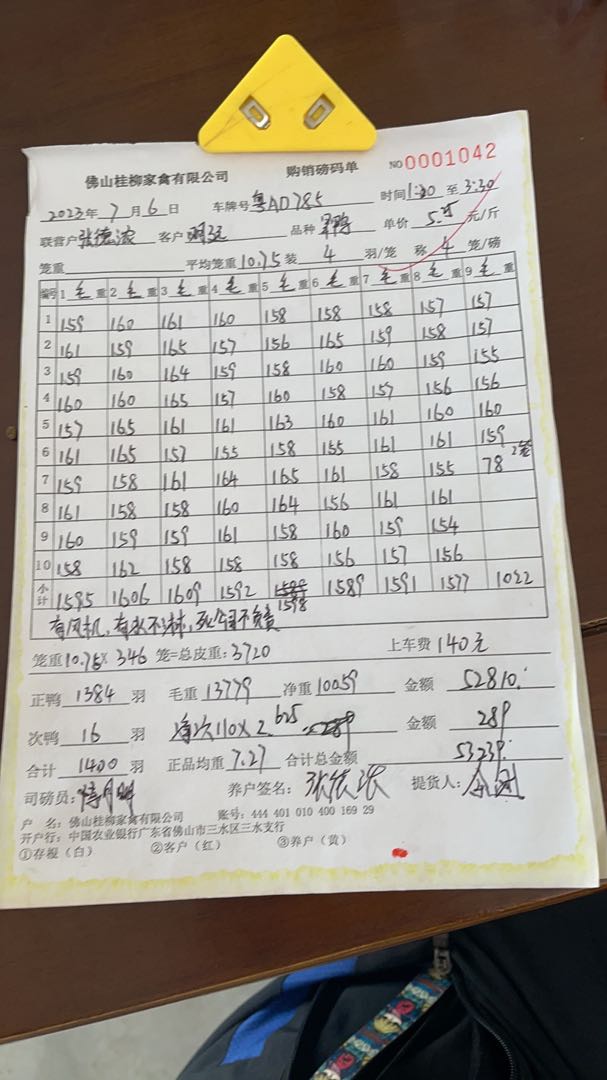 佛山桂柳家禽有限公司 购销磅码单 NO 0001042
2023年 7 月 6 日 车牌号 粤AD785 时间 1:20 至 3:30
联营户 张德浓 客户 品种 单价 元/斤
笼重 平均笼重 10.75 装 4 羽/笼 称 4 笼/磅
编号 1 毛 重 2 毛 重 3 毛 重 4 毛 重 5 毛 重 6 毛 重 7 毛 重 8 毛 重 9 毛 重
1 159 160 161 160 158 158 158 157 157
2 161 159 165 157 156 165 159 158 157
3 159 160 164 159 158 160 160 159 155
4 160 160 165 157 160 158 157 156 156
5 157 165 161 161 163 160 161 160 160
6 161 165 157 155 158 155 161 161 159
7 159 158 161 164 165 161 158 155 78 2笼
8 161 158 158 160 164 156 161 161
9 160 159 159 161 158 160 159 154
10 158 162 158 158 158 156 157 156
小计 1595 1606 1609 1592 1598 1589 1591 1577 1022
有风机，有水不淋，死个图不负责
笼重 10.75× 346 笼=总皮重: 3720 上车费 140元
正鸭 1384 羽 毛重 13779 净重 10059 金额 52810.
次鸭 16 羽 净次110×2.625 金额 289
合计 1400 羽 正品均重 7.27 合计总金额 53239.
司磅员: 养户签名: 张德浓 提货人:
户 名: 佛山桂柳家禽有限公司 账号: 444 401 010 400 169 29
开户行: 中国农业银行广东省佛山市三水区三水支行
①存根（白） ②客户（红） ③养户（黄）